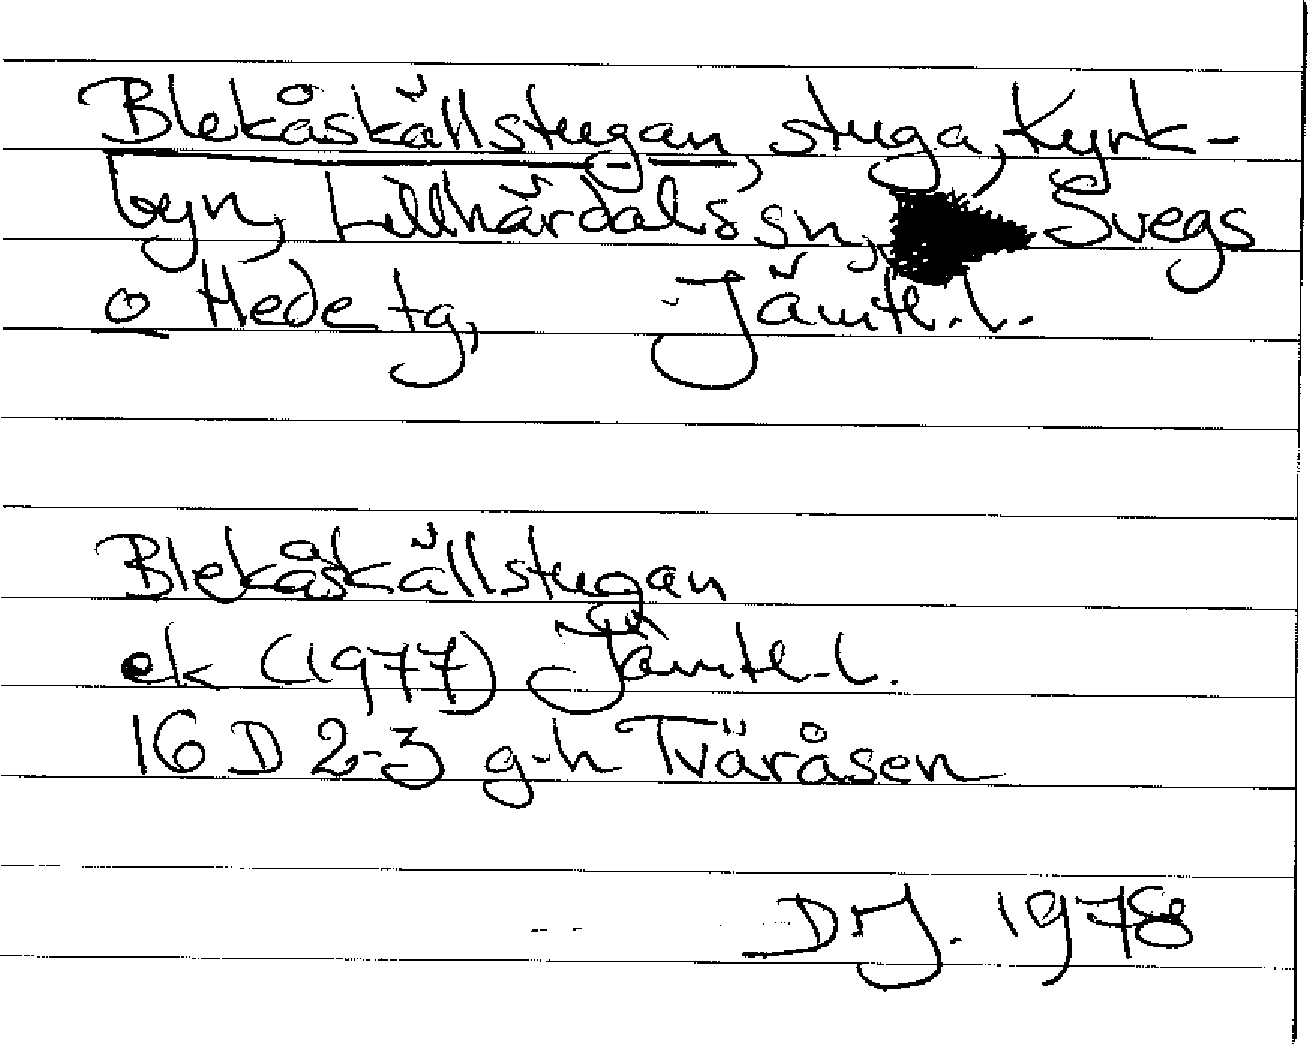 Blekåskällstugan, stuga, Kyrk-
byn, Lillhärdals sn, Svegs
o Hede tg, Jämtl. l.
Blekåskällstugan
ek (1977) Jämtl. l.
16 D 2-3 g-h Tväråsen
DJ. 1978